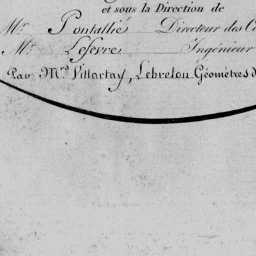 et sous la Direction de
Mr. Pontallié Directeur des
Mr. Lefevre Ingénieur
Par Mrs. Villartay, Lebreton Géomètres